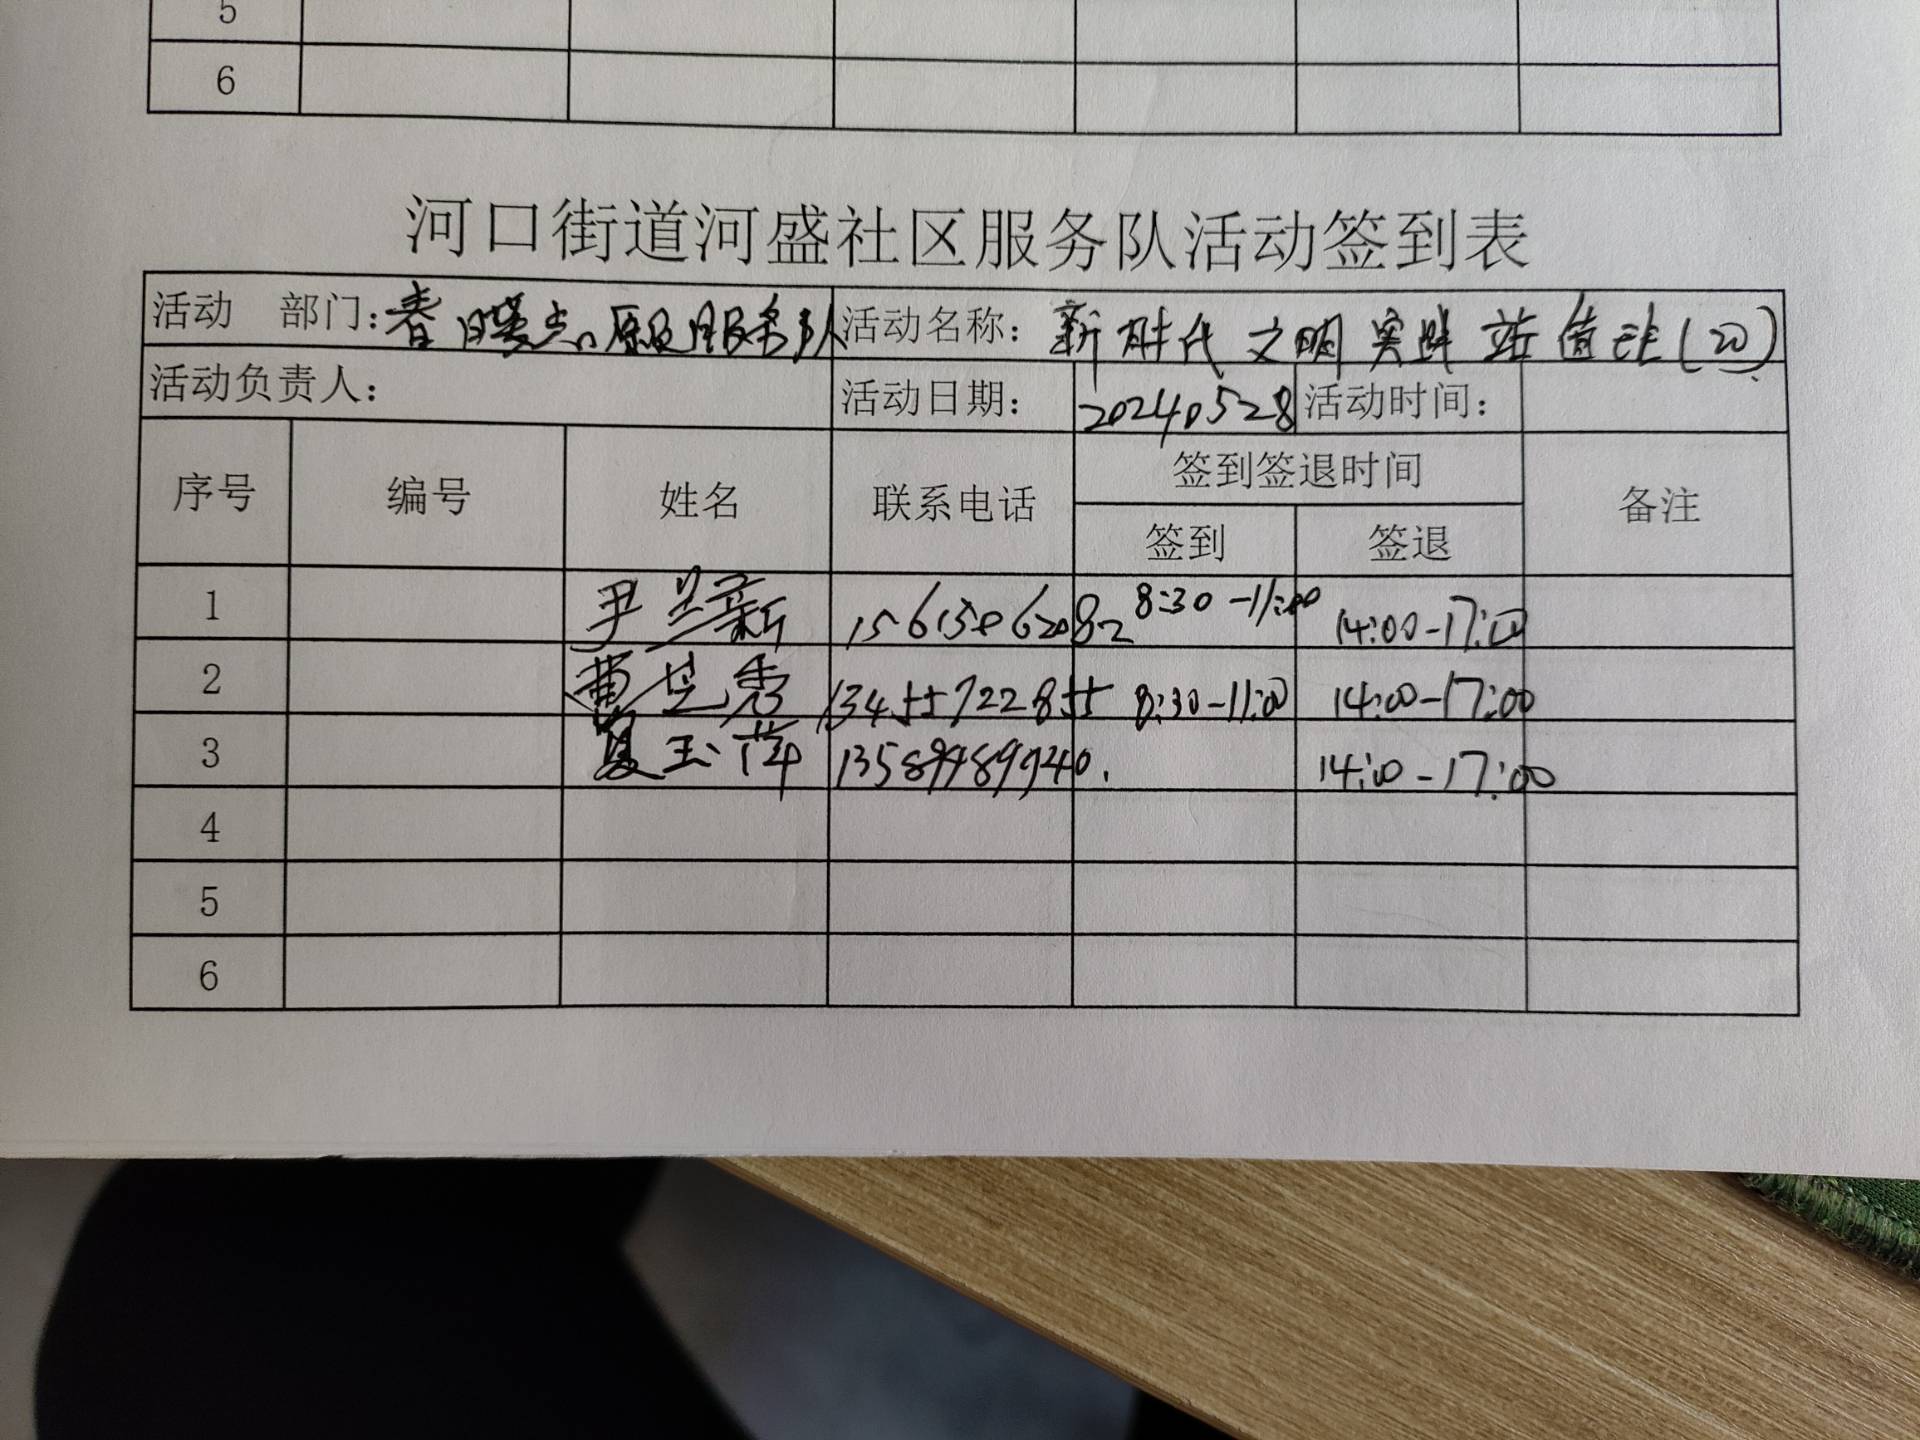 5
6
河口街道河盛社区服务队活动签到表
活动 部门: 春曙志愿服务队 活动名称: 新时代文明实践站值班(四)
活动负责人: 活动日期: 20240528 活动时间:
序号 编号 姓名 联系电话 签到签退时间 备注
签到 签退
1 尹兰新 15615062082 8:30-11:00 14:00-17:00
2 曹芝秀 13455722855 8:30-11:00 14:00-17:00
3 夏玉萍 13589489740. 14:00-17:00
4
5
6